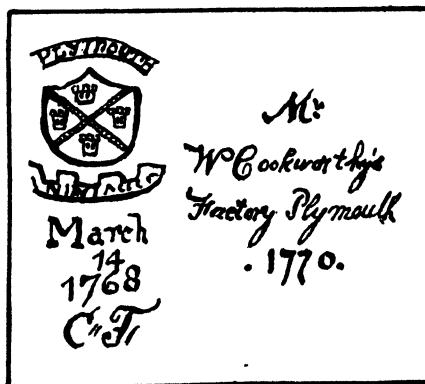 PLYMOUTH
March
14
1768
C" F
Mr
Wm Cookworthy's
Factory Plymouth
. 1770.